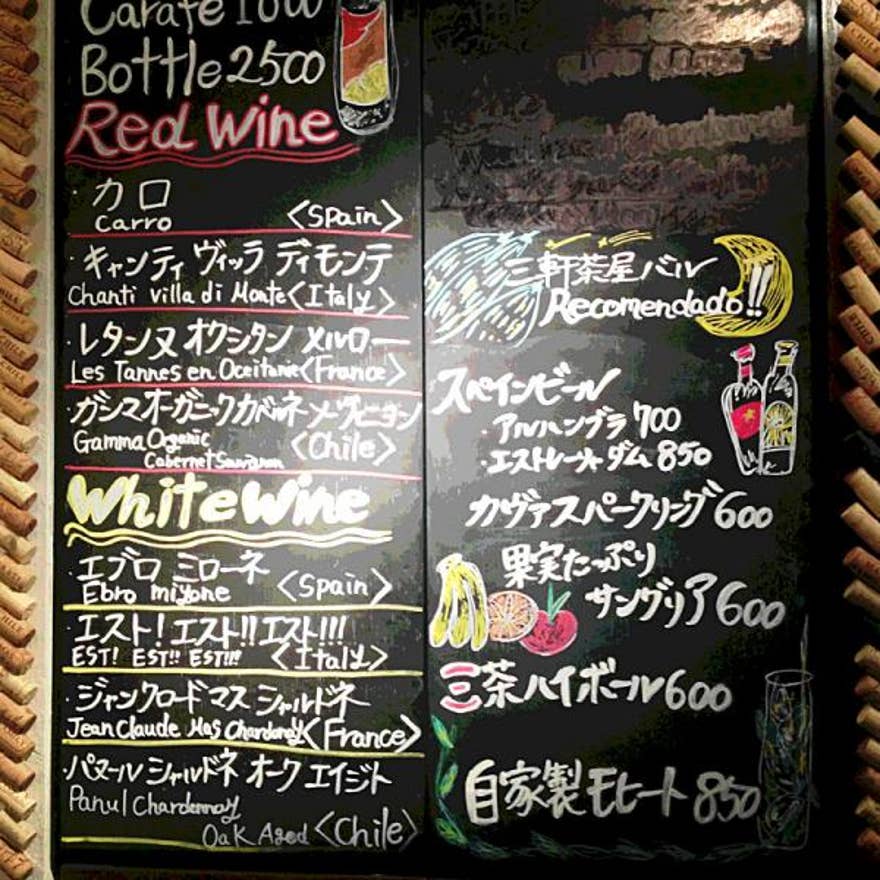 Carafe 1000
Bottle 2500
Red Wine
・カロ
Carro <Spain>
・キャンティ ヴィッラ ディモンテ
Chanti villa di Monte <Italy>
・レタンヌ オクシタン メルロー
Les Tannes en Occitanie <France>
・ガンマオーガニックカベルネ ソーヴィニヨン
Gamma Organic <Chile>
Cabernet Sauvignon
White Wine
・エブロ ミローネ
Ebro miyone <Spain>
・エスト!エスト!!エスト!!!
EST! EST!! EST!!! <Italy>
・ジャンクロードマス シャルドネ
Jean Claude Mas Chardonay <France>
・パヌール シャルドネ オーク エイジト
Panul Chardennay
Oak Aged <Chile>
三軒茶屋バル
Recomendado!!
スペインビール
・アルハンブラ 700
・エストレージャ ダム 850
カヴァスパークリング 600
果実たっぷり
サングリア 600
三茶ハイボール 600
自家製モヒート 850